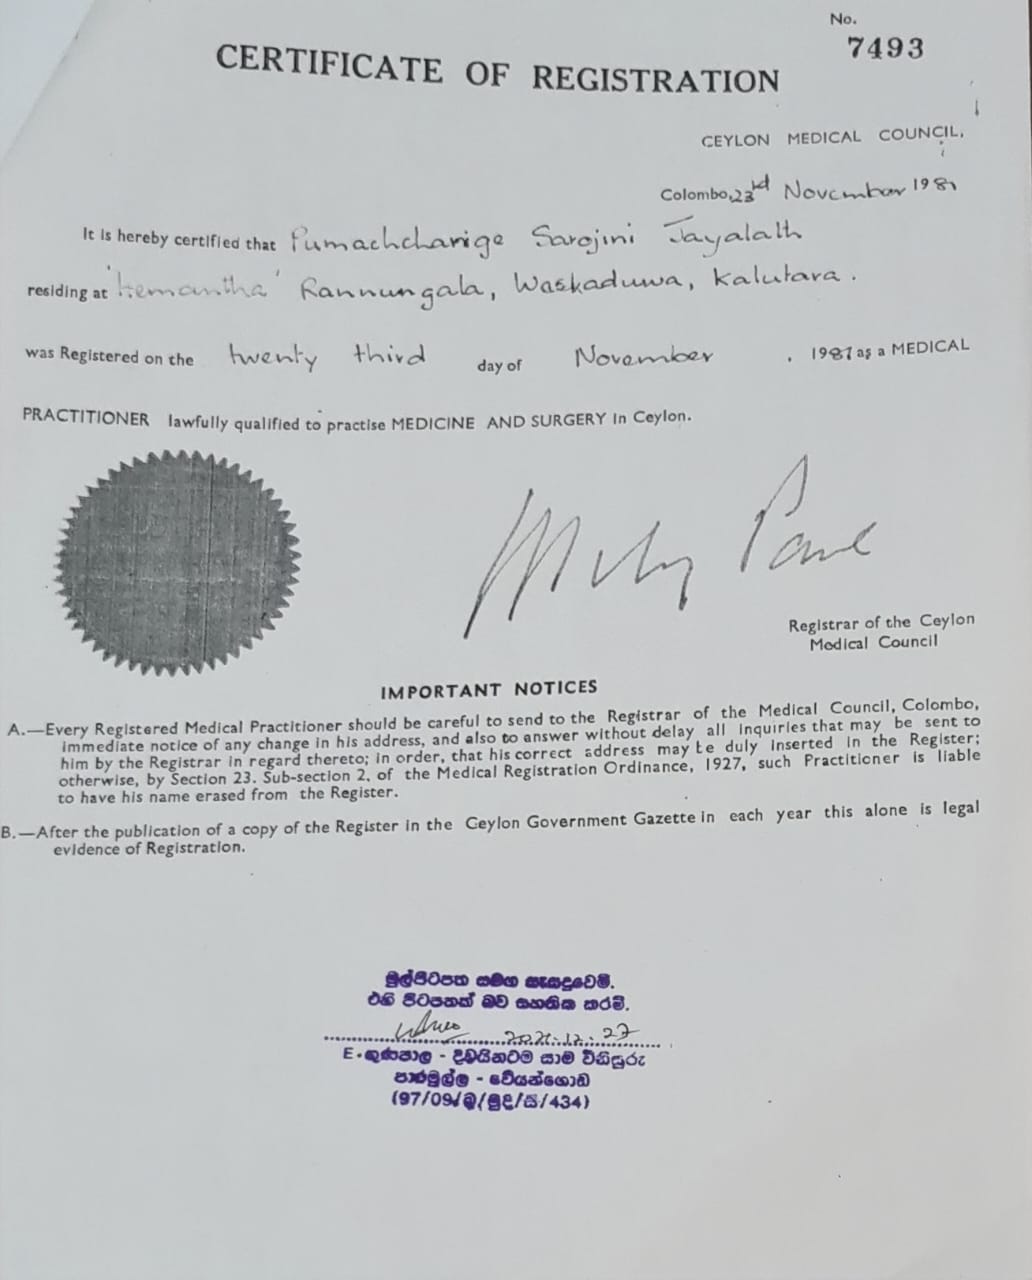 No.
7493
CERTIFICATE OF REGISTRATION
CEYLON MEDICAL COUNCIL,
Colombo, 23rd November 1981
It is hereby certified that Pumachchanige Sarojini Jayalath
residing at 'Hemantha' Rannungala, Waskaduwa, Kalutara.
was Registered on the twenty third day of November, 1981 as a MEDICAL
PRACTITIONER lawfully qualified to practise MEDICINE AND SURGERY in Ceylon.
Registrar of the Ceylon
Medical Council
IMPORTANT NOTICES
A.—Every Registered Medical Practitioner should be careful to send to the Registrar of the Medical Council, Colombo,
immediate notice of any change in his address, and also to answer without delay all inquiries that may be sent to
him by the Registrar in regard thereto; in order, that his correct address may be duly inserted in the Register;
otherwise, by Section 23. Sub-section 2, of the Medical Registration Ordinance, 1927, such Practitioner is liable
to have his name erased from the Register.
B.—After the publication of a copy of the Register in the Ceylon Government Gazette in each year this alone is legal
evidence of Registration.
මුල්පිටපත සමග සැසඳුවෙමි.
එහි පිටපතක් බව සහතික කරමි.
2021.12.27
E. ගුණපාල - දිවයිනටම සාම විනිසුරු
පාරමුල්ල - වේයන්ගොඩ
(97/09/බ/මුද/ස/434)